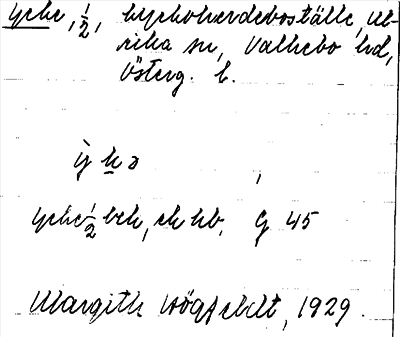 Lycke, 1/2, kyrkoherdeboställe, Ul-
rika sn, Valkebo hd,
Österg. l.
ỳ k ə
ycke 1/2 bck, ck hb, G 45
Margith Högfeldt, 1929.